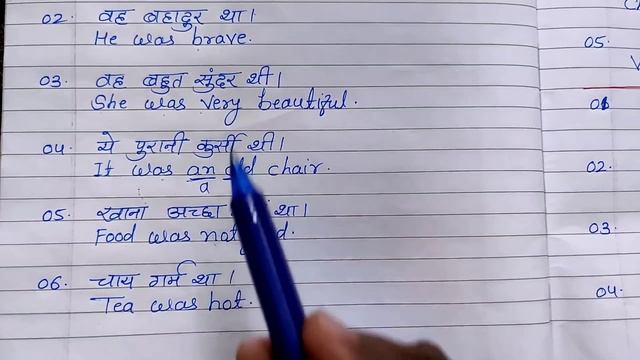 02. वह बहादुर था।
He was brave.
03. वह बहुत सुंदर थी।
She was very beautiful.
04. ये पुरानी कुर्सी थी।
It was an old chair.
a
05. खाना अच्छा था।
Food was not
06. चाय गर्म था।
Tea was hot.
05.
01
02.
03.
04.